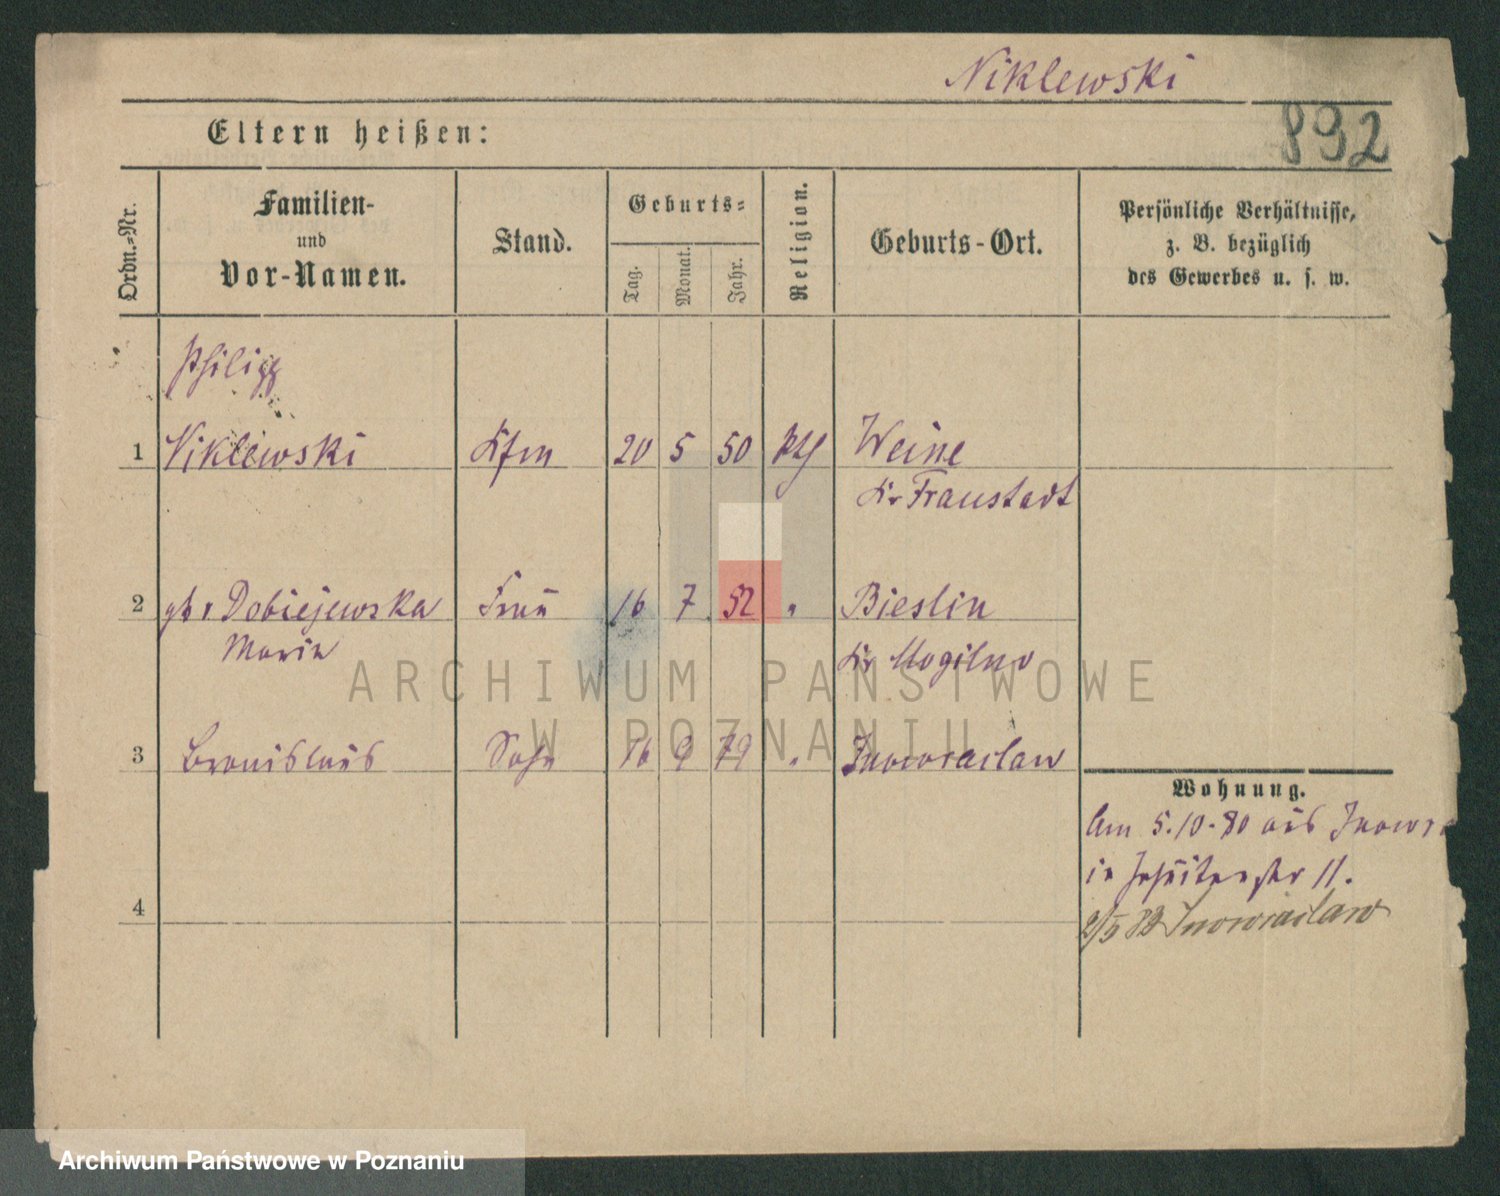 Niklewski
892
Eltern heißen:
Ordn.-Nr.
Familien-
und
Vor-Namen.
Stand.
Geburts-
Tag.
Monat.
Jahr.
Religion.
Geburts-Ort.
Persönliche Verhältnisse,
z. B. bezüglich
des Gewerbes u. s. w.
Philipp
1 Niklewski Kfm 20 5 50 kth Weine
Kr Fraustadt
2 geb. Dobiejewska Frau 16 7 52 " Bieslin
Maria Kr Mogilno
3 Bronislaus Sohn 16 9 79 " Inowraclaw
Wohnung.
Am 5.10.80 aus Inowr
in Jesuitenstr 11.
4
2/5 82 Inowraclaw
ARCHIWUM PAŃSTWOWE
W POZNANIU
Archiwum Państwowe w Poznaniu